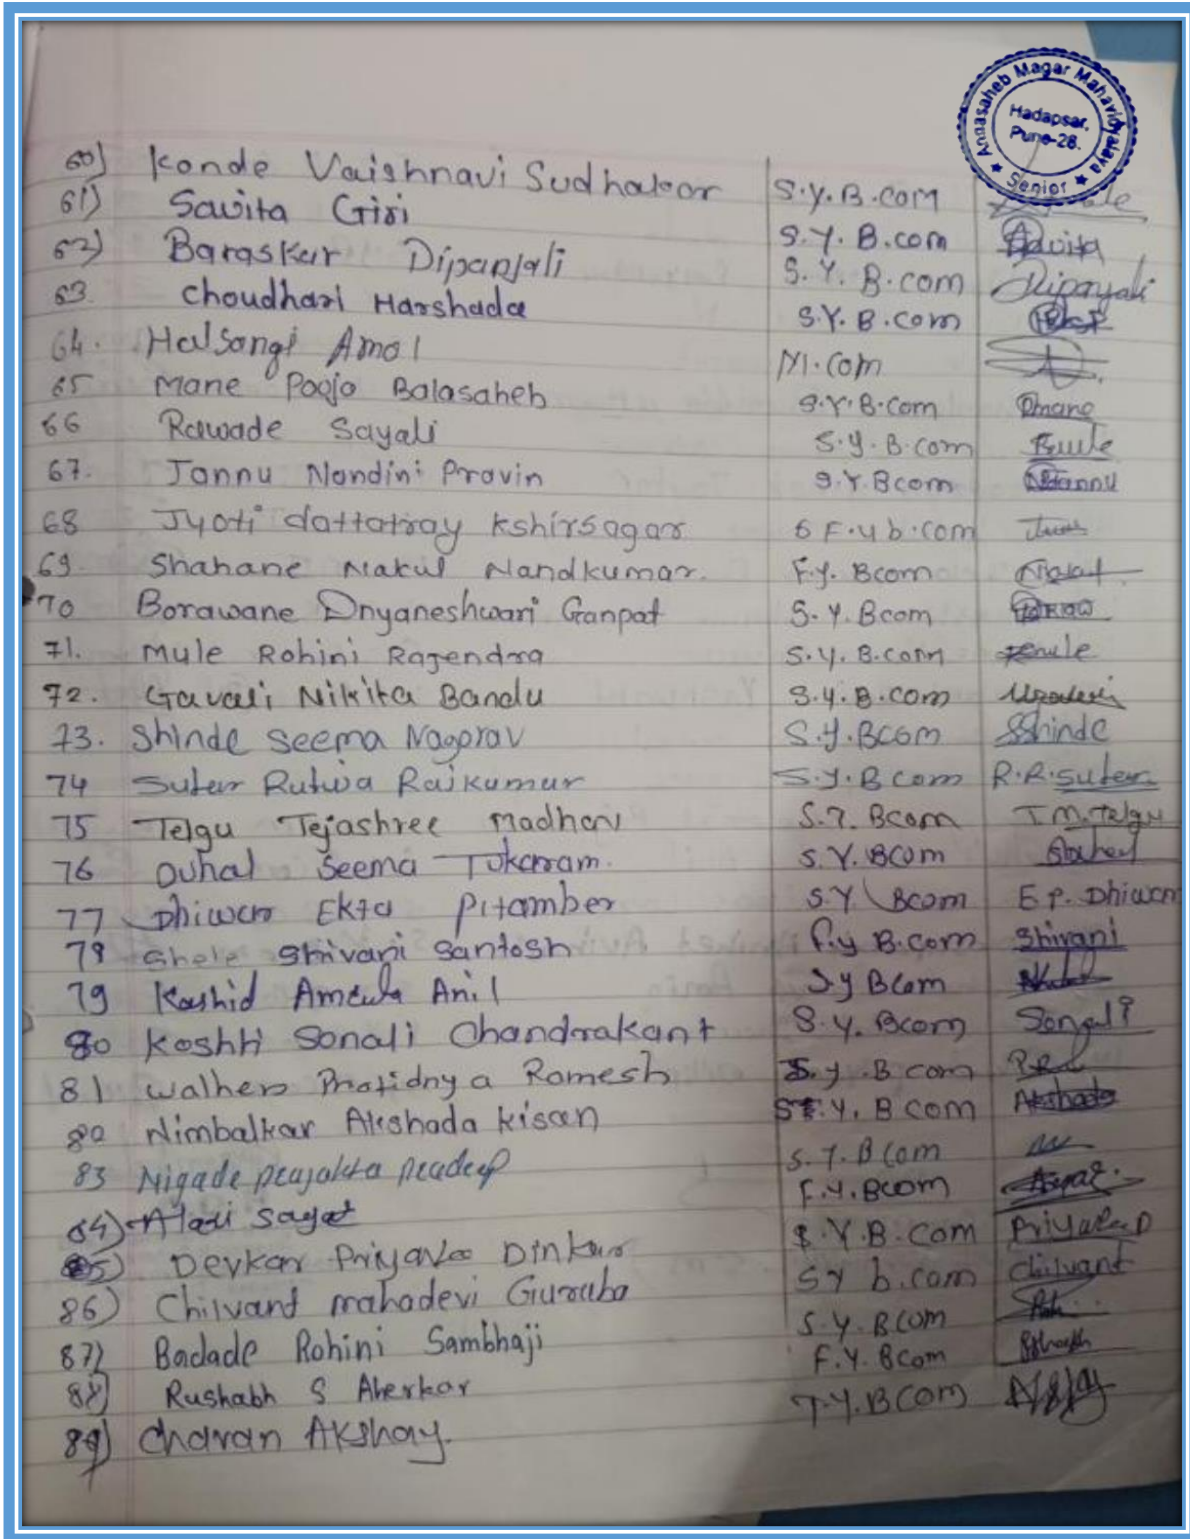 Annasaheb Magar Mahavidyalaya
Hadapsar,
Pune-28.
★ Senior ★
60) Konde Vaishnavi Sudhakar S.Y.B.com
61) Savita Giri S.Y. B.com Savita
62) Baraskar Dipanjali S.Y. B.com Dipanjali
63. Choudhari Harshada S.Y. B.com
64. Halsangi Amol M.com
65 Mane Pooja Balasaheb S.Y.B.com Pmane
66 Rawade Sayali S.Y.B.com
67. Jannu Nandini Pravin S.Y.Bcom NJannu
68 Jyoti dattatray kshirsagar F.y b.com
69. Shahane Nakul Nandkumar. F.y. Bcom
70 Borawane Dnyaneshwari Ganpat S.Y.Bcom
71. Mule Rohini Rajendra S.y. B.com
72. Gavali Nikita Bandu S.y.B.com
73. Shinde Seema Nagorav S.y.Bcom SShinde
74 Sutar Rutuja Rajkumar S.y.B com R.R.Sutar
75 Telgu Tejashree Madhav S.Y. Bcom T.M.Telgu
76 Duhal Seema Tukaram. S.Y. BCom
77 Dhiwar Ekta Pitamber S.Y. Bcom E.P. Dhiwar
78 Shele Shivani Santosh F.y B.com Shivani
79 Kashid Anil Sy Bcom
80 Koshti Sonali Chandrakant S.y. Bcom Sonali
81 Walhen Pratidnya Ramesh S.y .B com
82 Nimbalkar Akshada kisan S.Y. B com Akshada
83 Nigade prajakta pradeep S.Y.Bcom
84) Sagar F.Y.Bcom
85) Devkar Priyanka Dinkar S.Y.B.com
86) Chilvant mahadevi Guraba SY b.com Chilvant
87) Badade Rohini Sambhaji S.Y.Bcom
88) Rushabh S Aherkar F.Y. Bcom
89) Chavan Akshay. T.Y.BCom